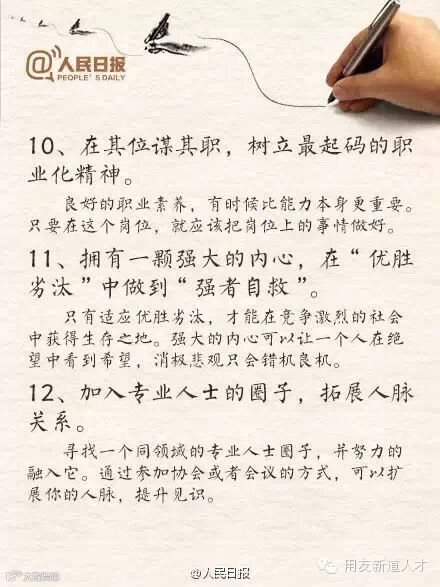 @人民日报
PEOPLE'S DAILY
10、在其位谋其职，树立最起码的职
业化精神。
良好的职业素养，有时候比能力本身更重要。
只要在这个岗位，就应该把岗位上的事情做好。
11、拥有一颗强大的内心，在“优胜
劣汰”中做到“强者自救”。
只有适应优胜劣汰，才能在竞争激烈的社会
中获得生存之地。强大的内心可以让一个人在绝
望中看到希望，消极悲观只会错机良机。
12、加入专业人士的圈子，拓展人脉
关系。
寻找一个同领域的专业人士圈子，并努力的
融入它。通过参加协会或者会议的方式，可以扩
展你的人脉，提升见识。
@人民日报
用友新道人才